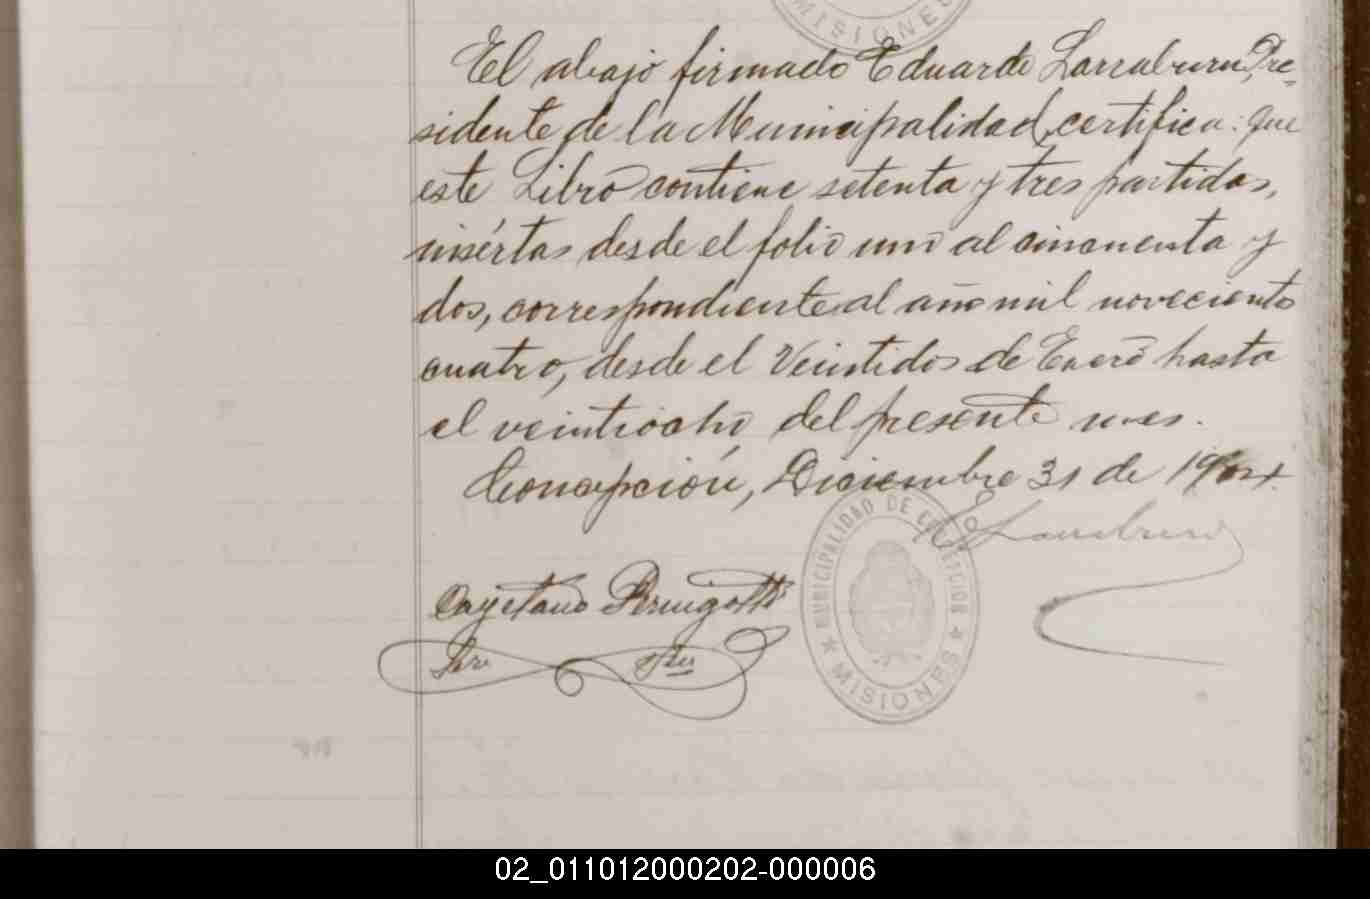 MISIONES
El abajo firmado Eduardo Larraburu, Pre-
sidente de la Municipalidad, certifica: que
este Libro contiene setenta y tres partidas,
insértas desde el folio uno al cincuenta y
dos, correspondiente al año mil novecientos
cuatro, desde el Veintidos de Enero hasta
el veintiocho del presente mes.
Concepción, Diciembre 31 de 1904.
MUNICIPALIDAD DE CONCEPCION
MISIONES
E Larraburu
Cayetano Peruigotti
Srio
02_011012000202-000006